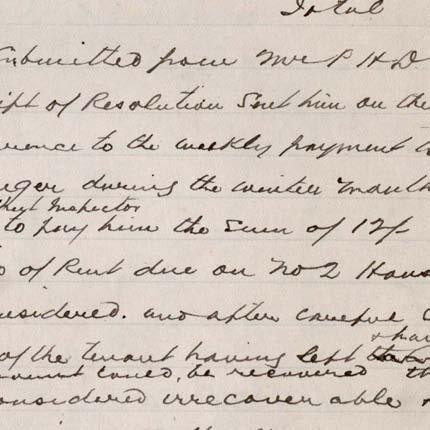 Total
Submitted from Mr P H D
ipt of Resolution Sent him on the
erence to the weekly payment
nger during the winter month
ket Inspector
to pay him the sum of 12/-
of Rent due on No 2 Hous
nsidered. and after careful
+ that
of the tenant having left
amount could, be recovered th
onsidered irrecoverable